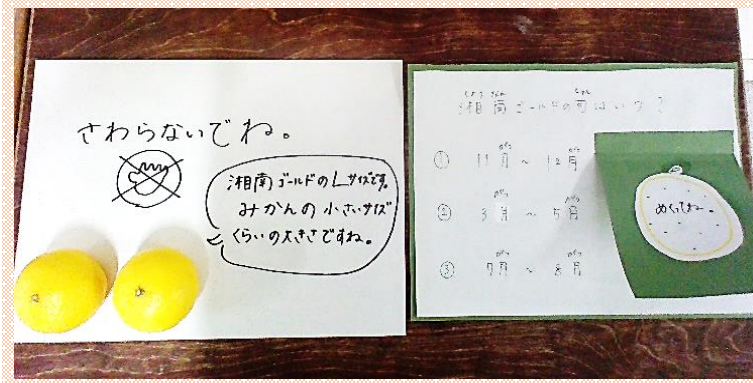 さわらないでね。
湘南ゴールドのLサイズです。
みかんの小さいサイズ
くらいの大きさですね。
湘南ゴールドの旬はいつ？
① 11月 ~ 12月
② 3月 ~ 5月
③ 7月 ~ 8月
めくってね。